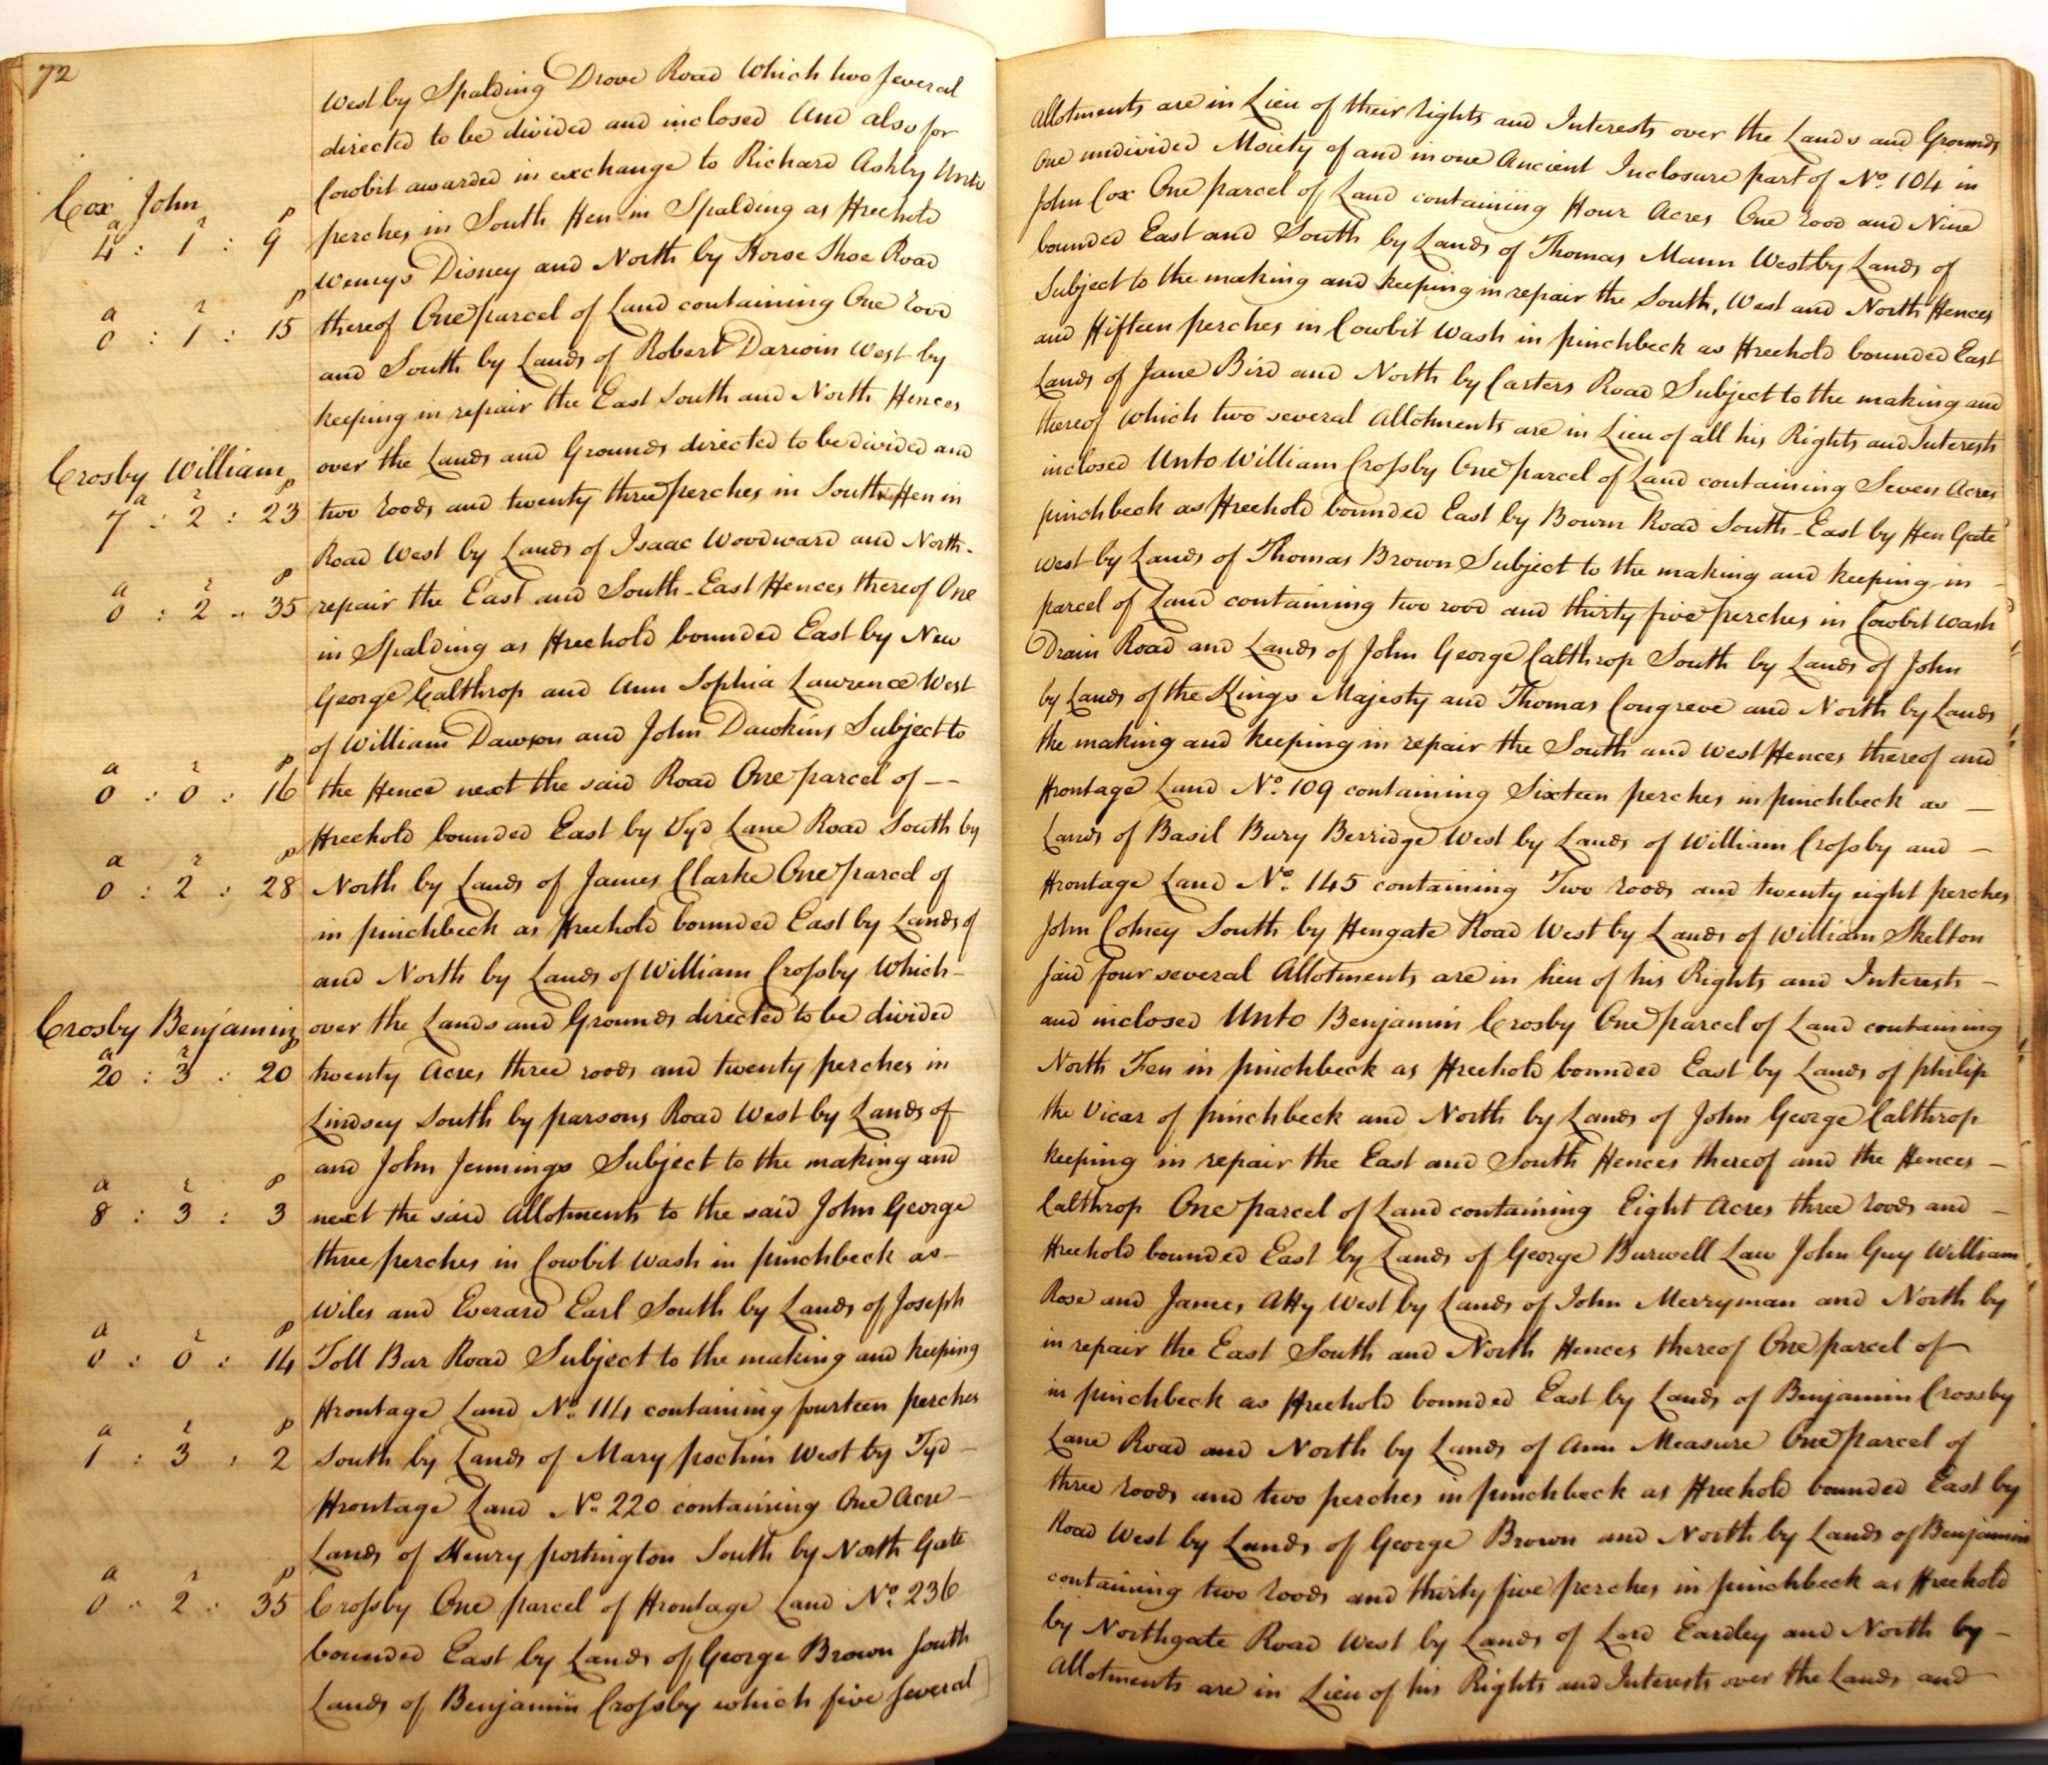 72
West by Spalding Drove Road Which two several Allotments are in Lieu of their rights and Interests over the Lands and Grounds
directed to be divided and inclosed And also for One undivided Moiety of and in one Ancient Inclosure part of No. 104 in
Cox John
Cowbit awarded in exchange to Richard Ashby Unto John Cox One parcel of Land containing Four Acres One rood and Nine
a r p
4 : 1 : 9
perches in South Fen in Spalding as Freehold bounded East and South by Lands of Thomas Mann West by Lands of
Wemys Disney and North by Horse Shoe Road Subject to the making and keeping in repair the South, West and North Fences
a r p
0 : 1 : 15
thereof One parcel of Land containing One rood and Fifteen perches in Cowbit Wash in pinchbeck as Freehold bounded East
and South by Lands of Robert Darwin West by Lands of Jane Bird and North by Carters Road Subject to the making and
keeping in repair the East South and North Fences thereof Which two several Allotments are in Lieu of all his Rights and Interests
Crosby William
over the Lands and Grounds directed to be divided and inclosed Unto William Crossby One parcel of Land containing Seven Acres
a r p
7 : 2 : 23
two roods and twenty three perches in South Fen in pinchbeck as Freehold bounded East by Bourn Road South-East by Fen Gate
Road West by Lands of Isaac Woodward and North- West by Lands of Thomas Brown Subject to the making and keeping in
a r p
0 : 2 : 35
repair the East and South-East Fences thereof One parcel of Land containing two rood and thirty five perches in Cowbit Wash
in Spalding as Freehold bounded East by New Drain Road and Lands of John George Calthrop South by Lands of John
George Calthrop and Ann Sophia Lawrence West by Lands of the Kings Majesty and Thomas Congreve and North by Lands
of William Dawson and John Dawkins Subject to the making and keeping in repair the South and West Fences thereof and
a r p
0 : 0 : 16
the Fence next the said Road One parcel of -- Frontage Land No. 109 containing Sixteen perches in pinchbeck as -
Freehold bounded East by Tyd Lane Road South by Lands of Basil Bury Berridge West by Lands of William Crossby and -
a r p
0 : 2 : 28
North by Lands of James Clarke One parcel of Frontage Land No. 145 containing Two roods and twenty eight perches
in pinchbeck as Freehold bounded East by Lands of John Colney South by Fengate Road West by Lands of William Skelton
and North by Lands of William Crossby Which - said four several Allotments are in lieu of his Rights and Interests -
Crosby Benjamin
over the Lands and Grounds directed to be divided and inclosed Unto Benjamin Crosby One parcel of Land containing
a r p
20 : 3 : 20
twenty Acres three roods and twenty perches in North Fen in pinchbeck as Freehold bounded East by Lands of philip
Lindsey South by parsons Road West by Lands of the Vicar of pinchbeck and North by Lands of John George Calthrop
and John Jennings Subject to the making and keeping in repair the East and South Fences thereof and the Fences -
a r p
8 : 3 : 3
next the said Allotments to the said John George Calthrop One parcel of Land containing Eight Acres three roods and -
three perches in Cowbit Wash in pinchbeck as - Freehold bounded East by Lands of George Burwell Law John Guy William
Wiles and Everard Earl South by Lands of Joseph Rose and James Atty West by Lands of John Merryman and North by
a r p
0 : 0 : 14
Toll Bar Road Subject to the making and keeping in repair the East South and North Fences thereof One parcel of
Frontage Land No. 114 containing fourteen perches in pinchbeck as Freehold bounded East by Lands of Benjamin Crossby
a r p
1 : 3 : 2
South by Lands of Mary pochin West by Tyd - Lane Road and North by Lands of Ann Measure One parcel of
Frontage Land No. 220 containing One Acre - three roods and two perches in pinchbeck as Freehold bounded East by
Lands of Henry portington South by North Gate Road West by Lands of George Brown and North by Lands of Benjamin
a r p
0 : 2 : 35
Crossby One parcel of Frontage Land No. 236 containing two roods and thirty five perches in pinchbeck as Freehold
bounded East by Lands of George Brown South by Northgate Road West by Lands of Lord Eardley and North by -
Lands of Benjamin Crossby which five several Allotments are in Lieu of his Rights and Interests over the Lands and